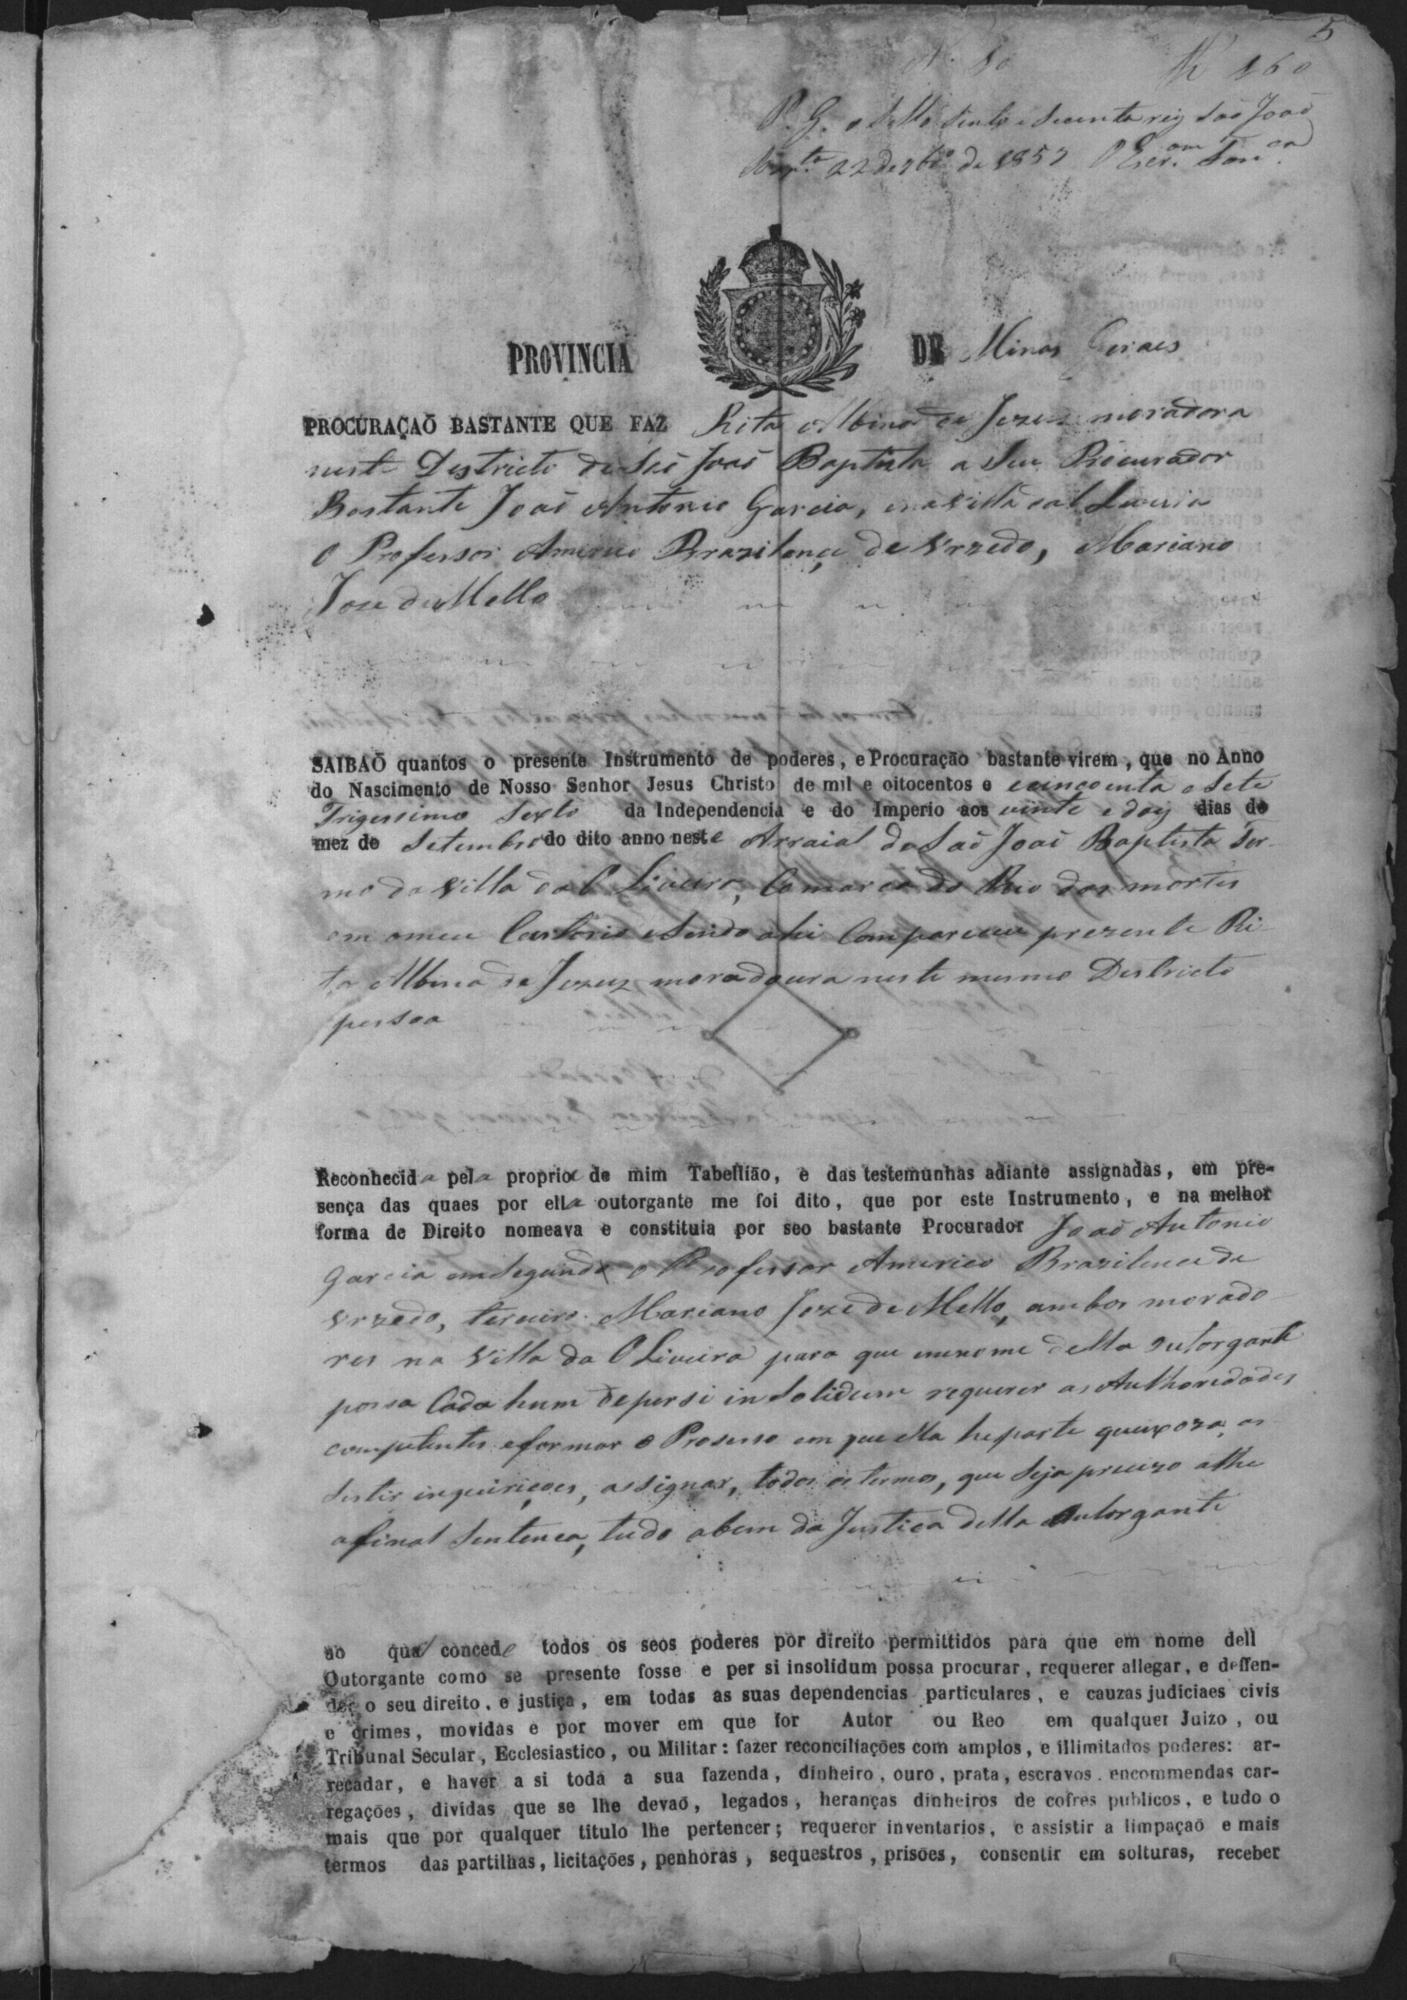 5
N. 10 N 160
P. G. o Sello Sento e Secenta reis São João
Bap.ta 22 de 7br.o de 1857 O Escr.am
PROVINCIA DE Minas Geraes
PROCURAÇAÕ BASTANTE QUE FAZ Rita Albina de Jezuz moradora
neste Destricto de Saõ Joaõ Baptista a Seu Procurador
Bastante Joaõ Antonio Garcia, ena Villa da Oliveira
O Professor Americo Brazilence de Urzedo, Mariano
Jose de Mello
SAIBAÕ quantos o presente Instrumento de poderes, e Procuração bastante virem, que no Anno
do Nascimento de Nosso Senhor Jesus Christo de mil e oitocentos e cincoenta e Sete
Trigessimo Sexto da Independencia e do Imperio aos vinte e doy dias do
mez de Setembro do dito anno neste Arraial de Saõ Joaõ Baptista Ter-
mo da Villa da Oliveira, Comarca do Rio das mortes
em omeu Cartorio e Sendo ahi Compareceu prezente Ri-
ta Albina de Jezuz moradoura neste mesmo Destricto
pessoa
Reconhecida pela propria de mim Tabellião, e das testemunhas adiante assignadas, em pre-
sença das quaes por ella outorgante me foi dito, que por este Instrumento, e na melhor
forma de Direito nomeava e constituia por seo bastante Procurador Joaõ Antonio
Garcia em Segundo o Professor Americo Brazilence de
Urzedo, terceiro Mariano Joze de Mello, ambos morado-
res na Villa da Oliveira para que em nome della outorgante
possa Cada hum de persi in Solidum requerer as Authoridades
competentes e formar o Prosesso em que ella he parte queixoza, as
sistir inquiriçoes, assignar, todos os termos, que Seja precizo athe
afinal Sentença, tudo abem da Justica della outorgante
ao qual concede todos os seos poderes por direito permittidos para que em nome dell
Outorgante como se presente fosse e per si insolidum possa procurar, requerer allegar, e deffen-
der o seu direito, e justiça, em todas as suas dependencias particulares, e cauzas judiciaes civis
e crimes, movidas e por mover em que for Autor ou Reo em qualquer Juizo, ou
Tribunal Secular, Ecclesiastico, ou Militar: fazer reconciliações com amplos, e illimitados poderes: ar-
recadar, e haver a si toda a sua fazenda, dinheiro, ouro, prata, escravos, encommendas car-
regações, dividas que se lhe devaõ, legados, heranças dinheiros de cofres publicos, e tudo o
mais que por qualquer titulo lhe pertencer; requerer inventarios, e assistir a limpaçaõ e mais
termos das partilhas, licitações, penhoras, sequestros, prisões, consentir em solturas, receber